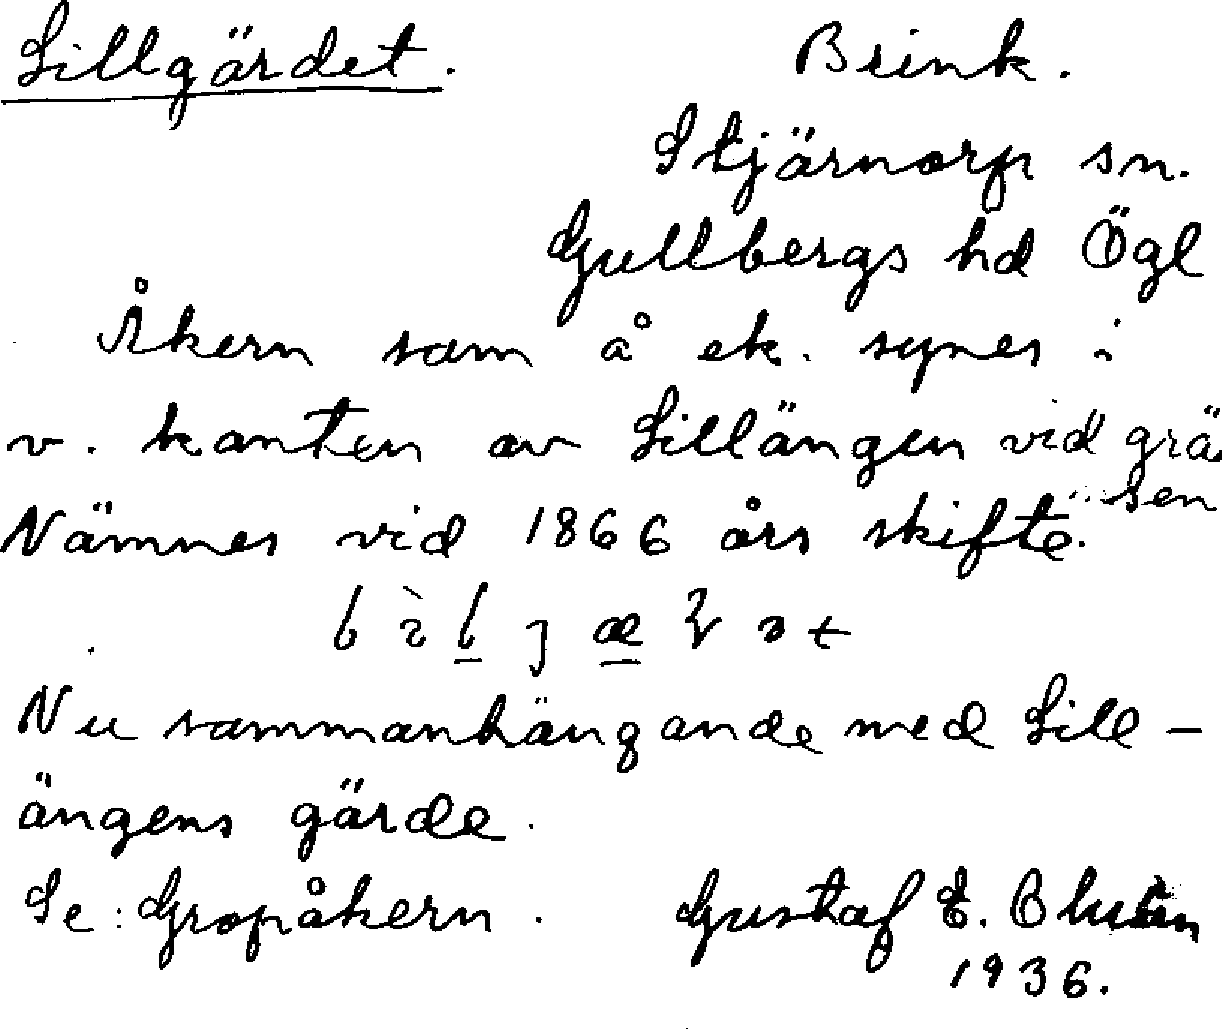 Lillgärdet. Brink.
Stjärnorp sn.
Gullbergs hd Ögl
Åkern som å ek. synes i
v. kanten av Lillängen vid grän
sen
Nämnes vid 1866 års skifte.
Nu sammanhängande med Lill-
ängens gärde.
Se: Gropåkern. Gustaf E.
1936.